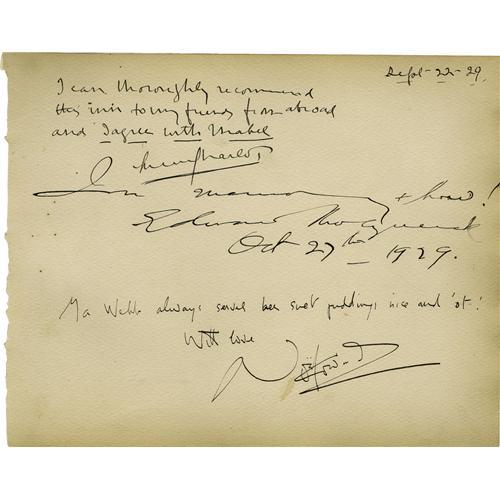 Sept-22-29.
I can thoroughly recommend
this inn to my friends from abroad
and I agree with Mabel
In memory + how!
Edward
Oct 27th 1929.
Ma Webb always serves her suet puddings nice and 'ot!
With love
Noël Coward